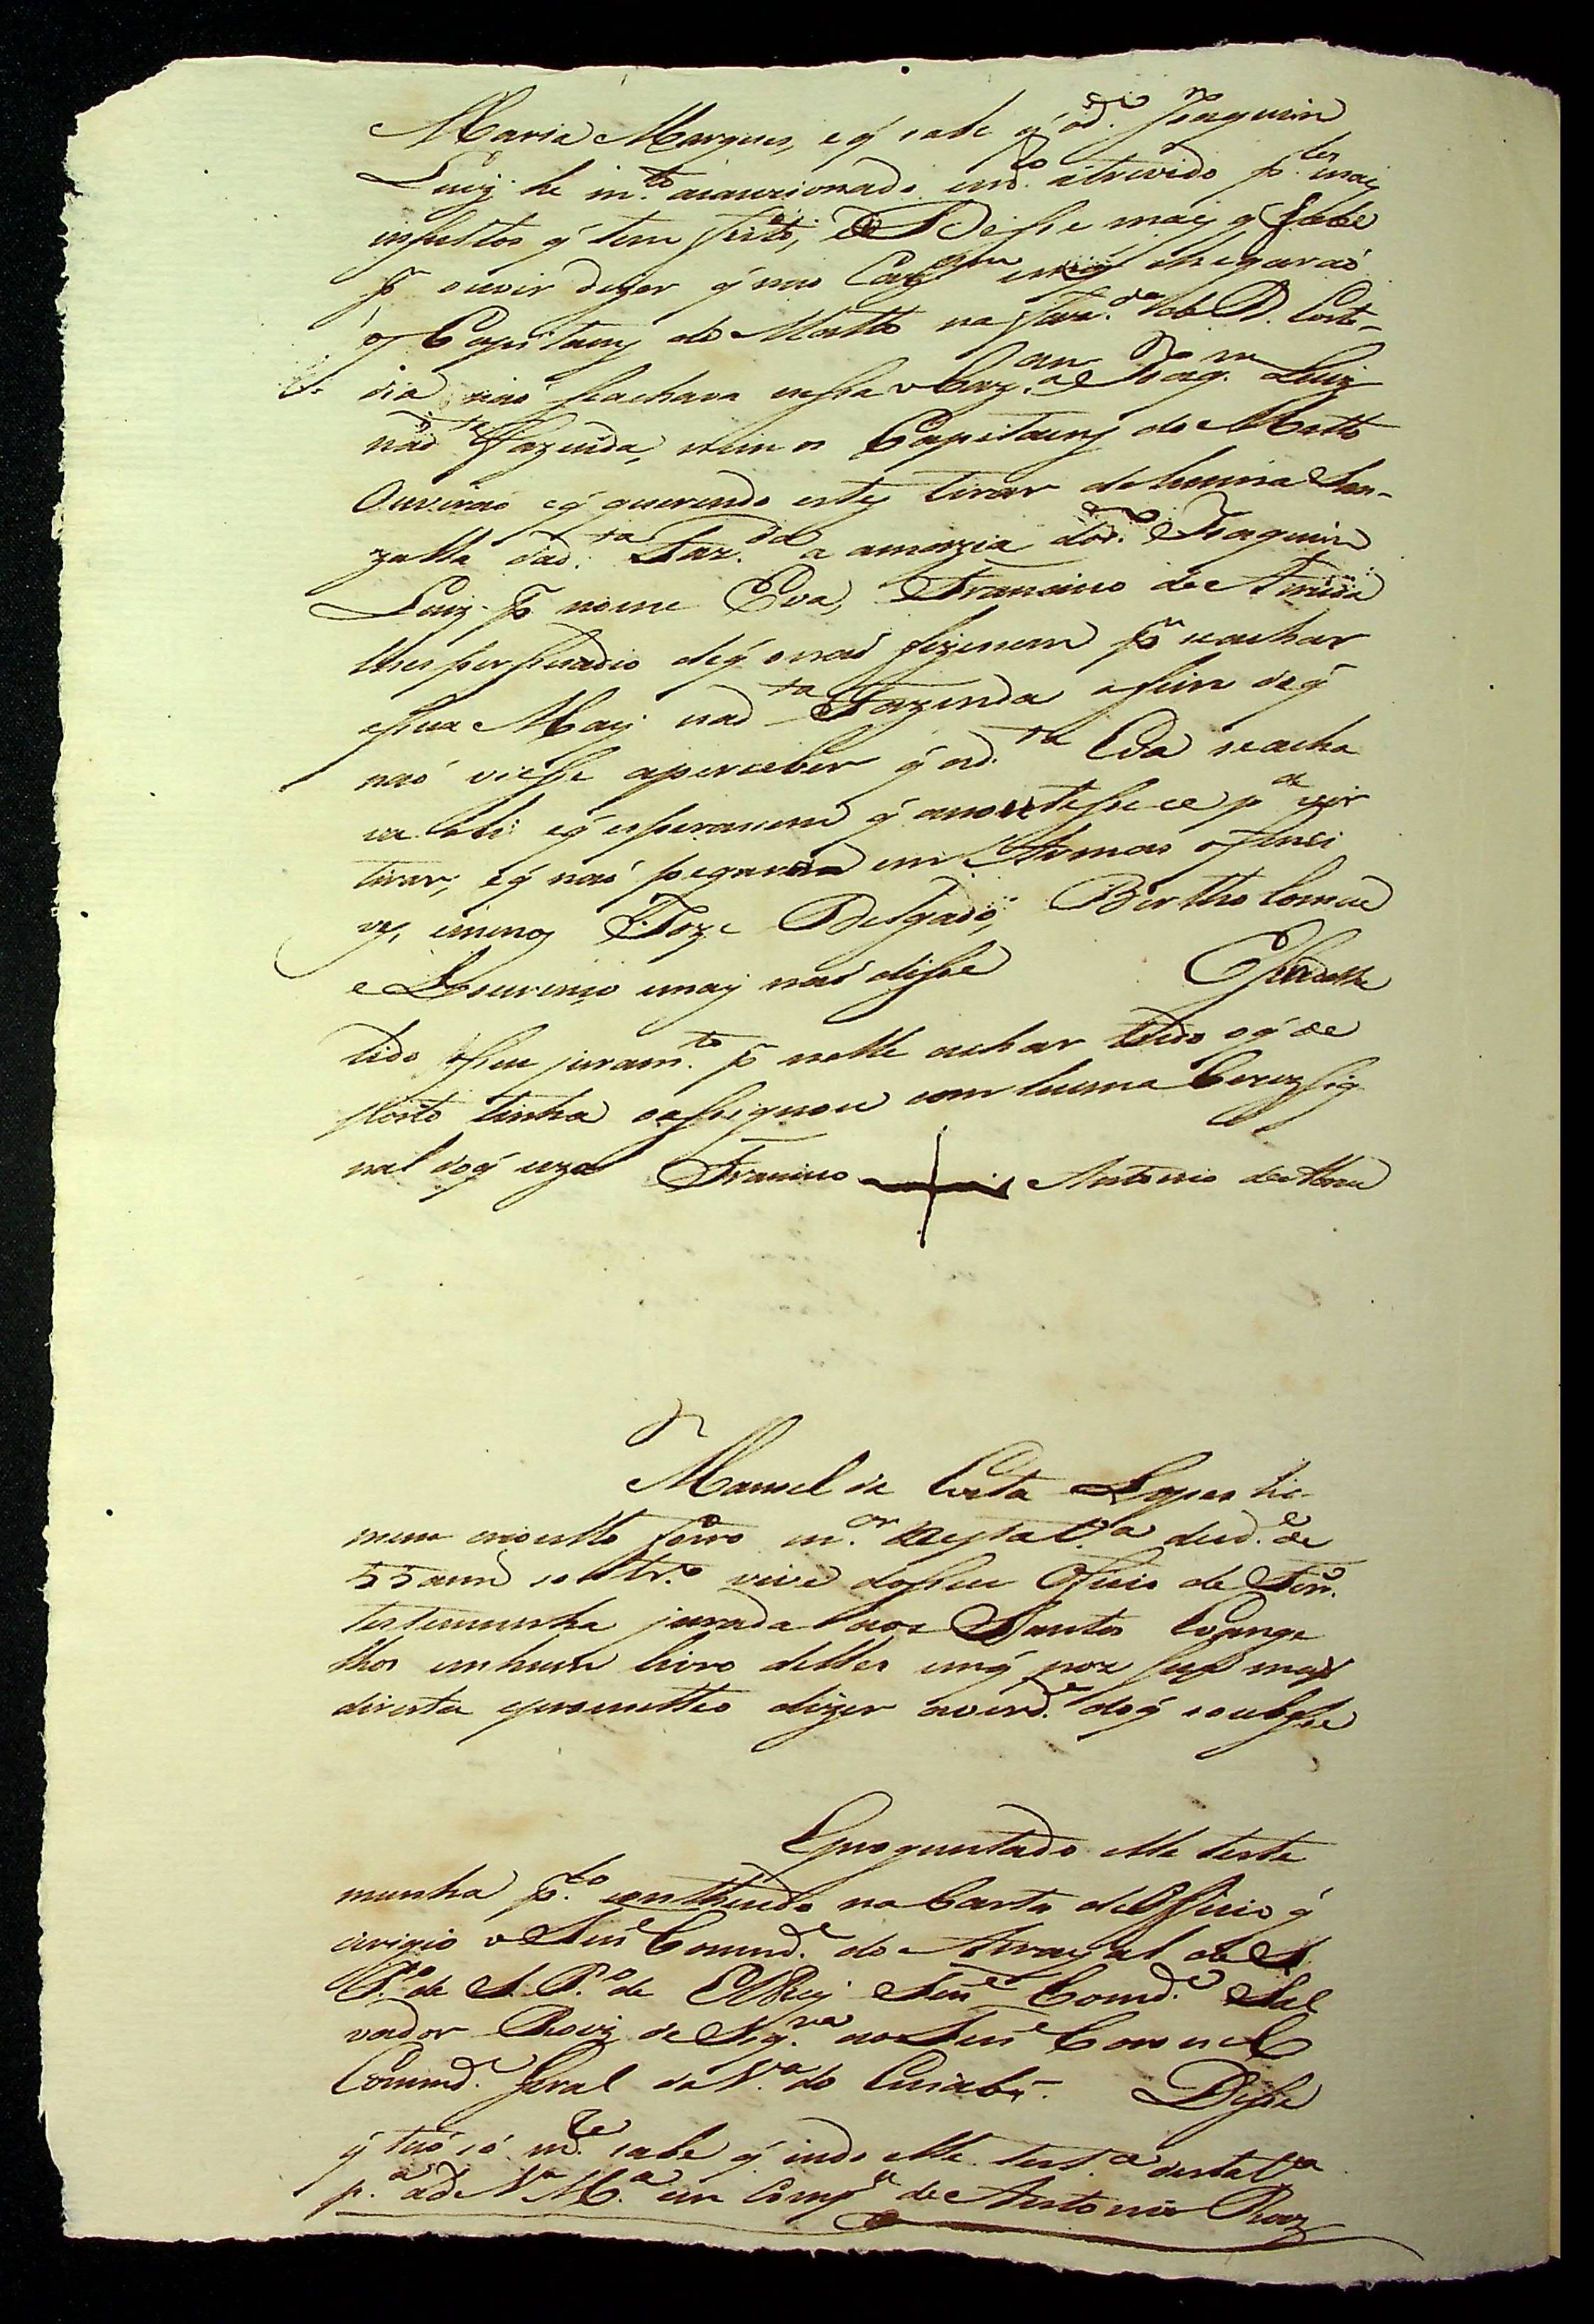 Maria Marques, e q̃ sabe q̃ od.º Joaquim
Luiz he m.to atrevido p.los mais
insultos q̃ tem feito, e Disse mais q̃ sabe
p̃ ouvir dizer q̃ nao chegaraó
os Capitaens do Matto na Faz.da de D. Custo-
dia naó seachava nessa Joaq.m Luiz
nad.ta Fazenda, nem os Capitaens do Matto
Ouviraó e q̃ querendo estes tirar de huma Sen-
zalla dad.ta Faz.da a amazia dod.º Joaquim
Luiz p̃ nome Eva, Francisco de Arruda
lhes persuadio deq̃ onaó fizessem p̃ seachar
essua May nad.ta Fazenda afim deq̃
naó viesse aperceber q̃ ad.ta Eva seacha
va ali e q̃ esperassem q̃ anoutesse ce p.a vir
tirar, e q̃ naó pegaraó em Armas ofensi
vas, e menos Joze Delgado, Bertholomeu
e Lourenço e mais naó disse E sendolhe
lido o seu juram.to p̃ nelle achar tudo oq̃ de
posto tinha oassignou com huma Cruz sig
nal doq̃ uza Francisco + Antonio de Abreu
Manoel da Costa Lopes ho
mem crioullo forro m.or nesta V.a deid.e de
55 annos solt.ro vive doseu Oficio de Ferr.o
testemunha jurada aos Santos Evange
lhos em hum livro delles em q̃ poz sua maó
direita eprometteo dizer averd.e doq̃ soubesse
Eproguntado elle teste
munha p.lo contheudo na Carta deOfficio q̃
dirigio o Snr̃ Comand.e do Arrayal de S.
P.º de El Rey Snr̃ Comd.e Sal
vador Roiz de Siq.ra ao Snr̃ Coronel
Comand.e Geral da V.a do Cuiabá. Disse
q̃ taó só m.te sabe q̃ indo elle test.a desta V.a
p.a ad.a V.a M.a em Comp.a de Antonio Roiz